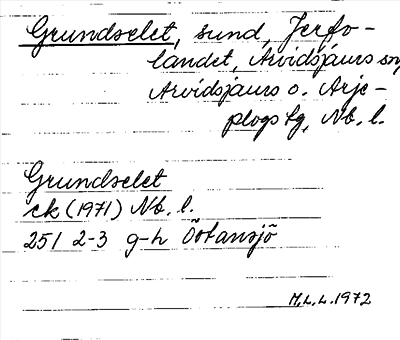 Grundselet, sund, Jerfo-
landet, Arvidsjaurs sn,
Arvidsjaurs o. Arje-
plogs tg, Nb. l.
Grundselet
ek (1971) Nb. l.
25 I 2-3 g-h Östansjö
M.L.L. 1972